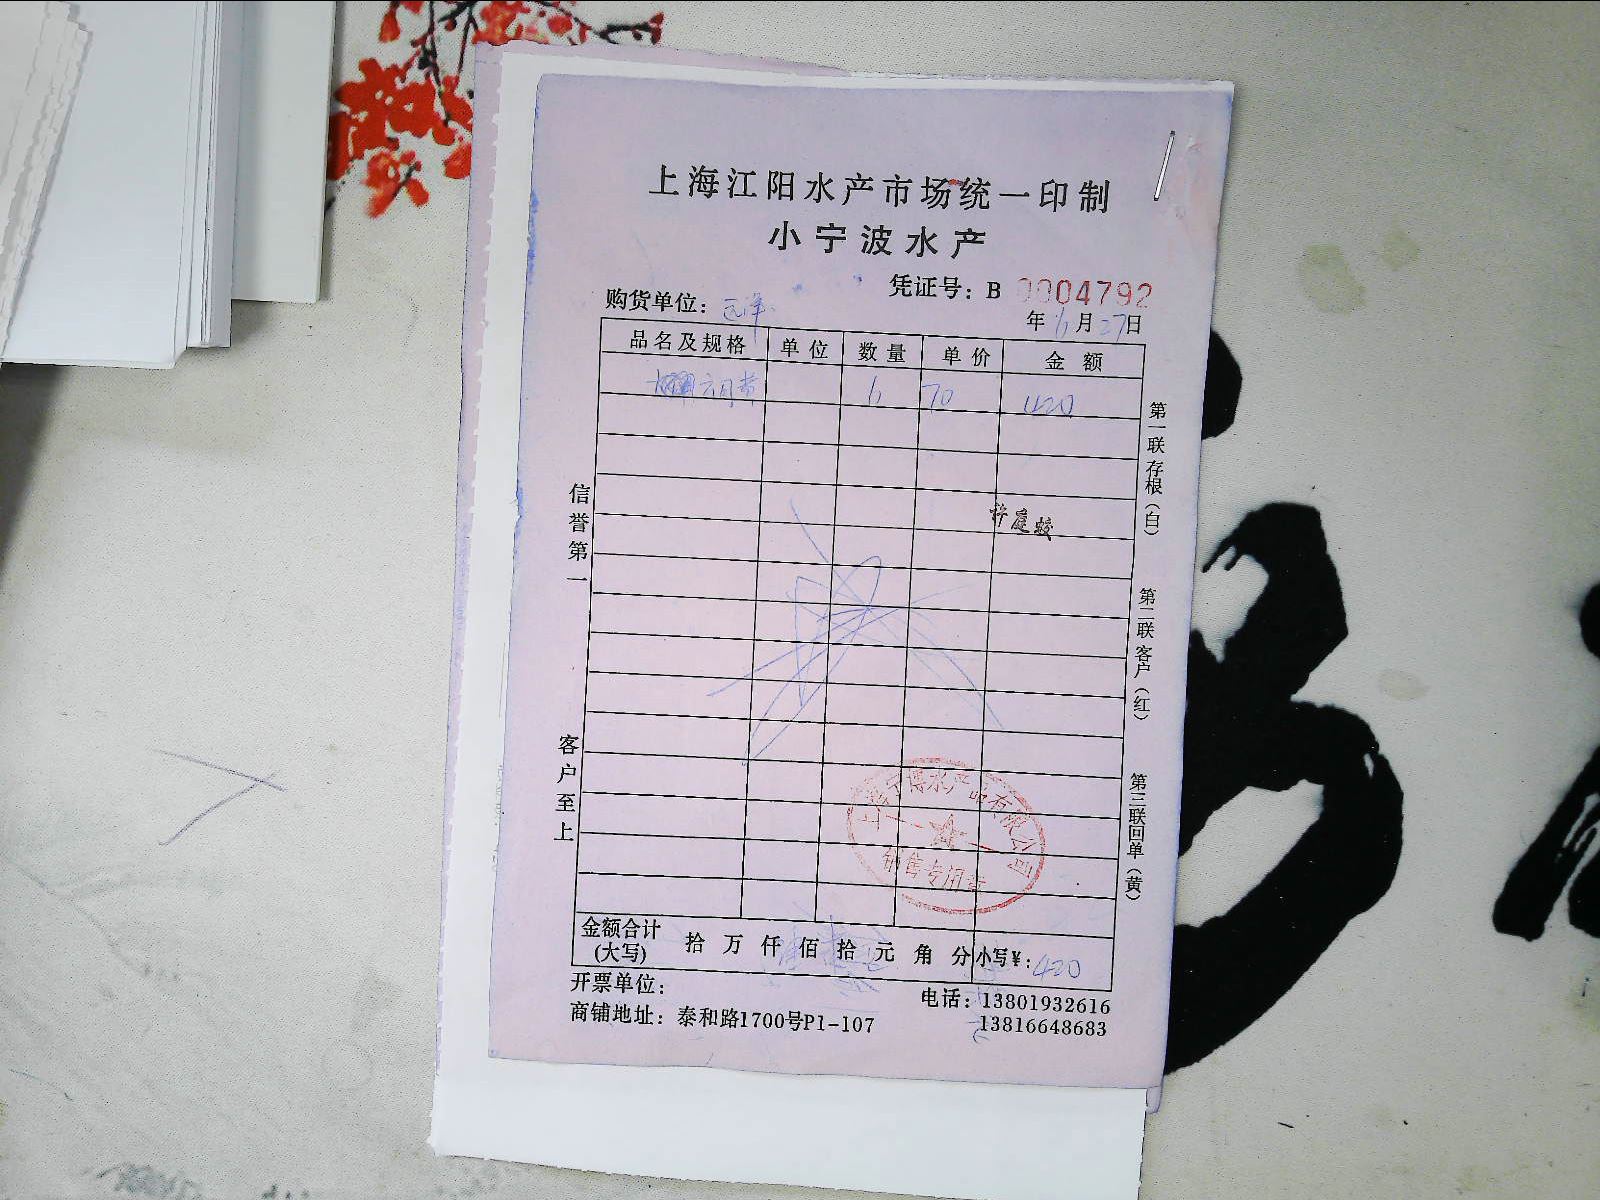 上海江阳水产市场统一印制
小宁波水产
凭证号：B 0004792
购货单位：远洋
年 6 月 27 日
品名及规格 单位 数量 单价 金额
六月黄 6 70 420
许庭蛟
信誉第一
客户至上
第一联存根（白）
第二联客户（红）
第三联回单（黄）
上海宁博水产品有限公司
销售专用章
金额合计(大写) 拾 万 仟 佰 拾 元 角 分 小写¥：420
开票单位：
电话：13801932616
商铺地址：泰和路1700号P1-107
13816648683